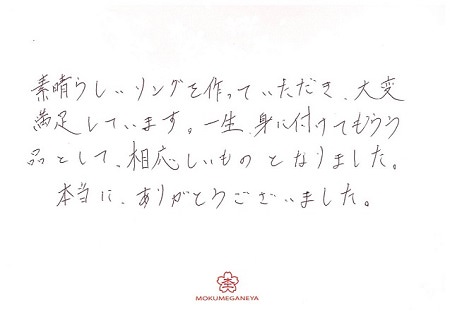 素晴らしいリングを作っていただき、大変
満足しています。一生、身に付けてもらう
品として、相応しいものとなりました。
本当に、ありがとうございました。
MOKUMEGANEYA